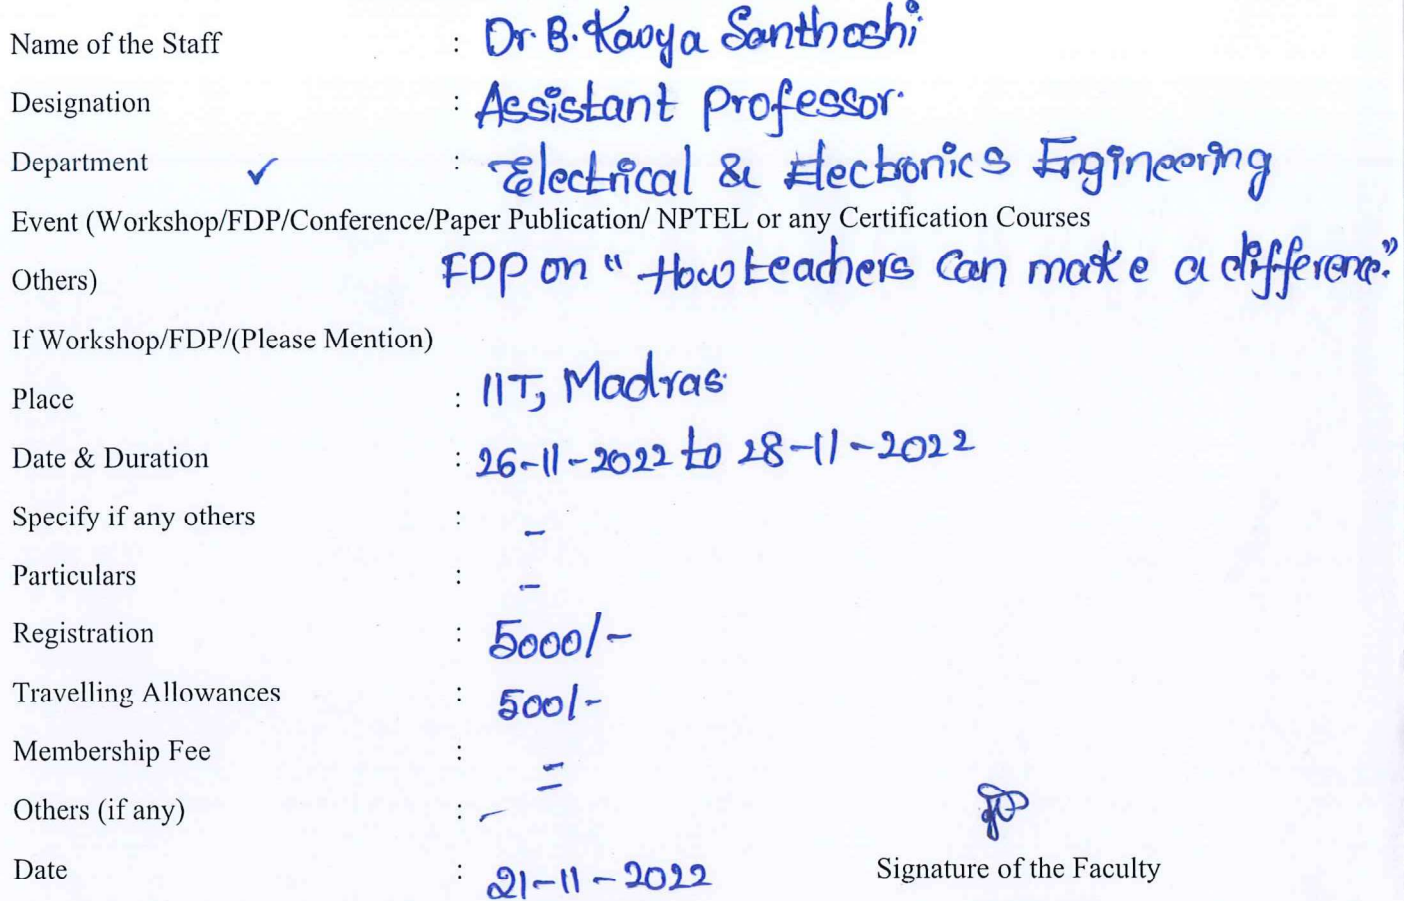 Name of the Staff : Dr. B. Kavya Santhoshi
Designation : Assistant Professor.
Department ✓ : Electrical & Electronics Engineering
Event (Workshop/FDP/Conference/Paper Publication/ NPTEL or any Certification Courses
Others) FDP on "How teachers can make a difference."
If Workshop/FDP/(Please Mention)
Place : IIT, Madras.
Date & Duration : 26-11-2022 to 28-11-2022
Specify if any others : -
Particulars : -
Registration : 5000/-
Travelling Allowances : 500/-
Membership Fee : -
Others (if any) : -
Date : 21-11-2022 Signature of the Faculty